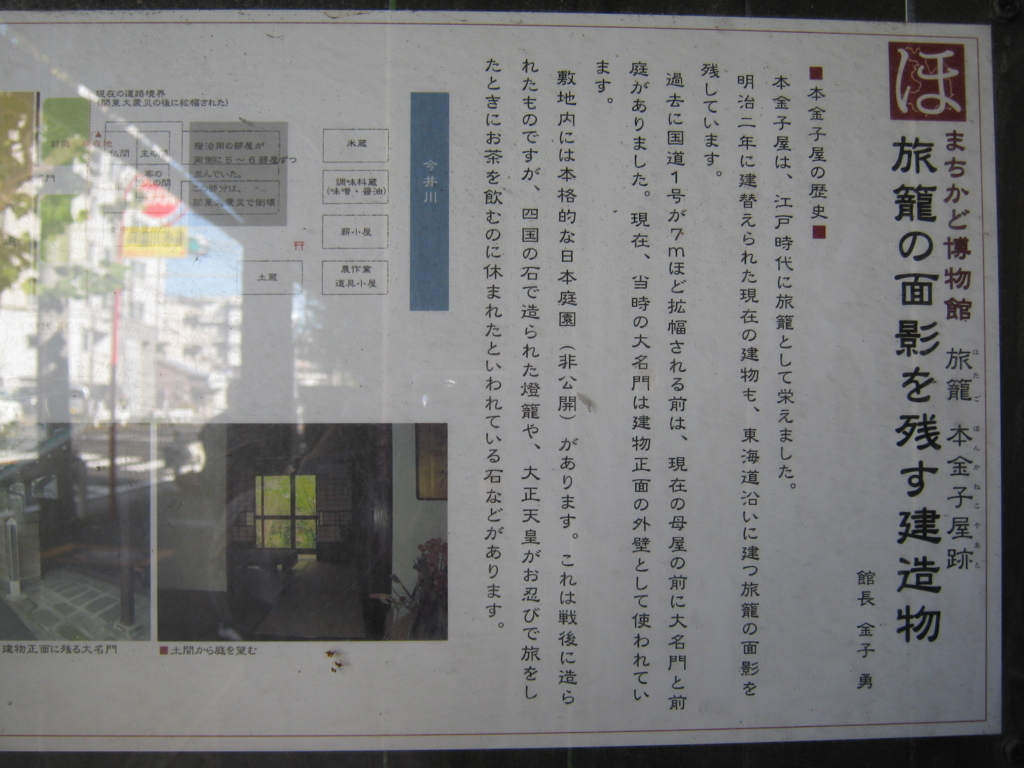 ほ
まちかど博物館 旅籠 本金子屋跡
はたご ほんかねこやあと
旅籠の面影を残す建造物
館長 金子 勇
■本金子屋の歴史■
本金子屋は、江戸時代に旅籠として栄えました。
明治二年に建替えられた現在の建物も、東海道沿いに建つ旅籠の面影を
残しています。
過去に国道1号が7mほど拡幅される前は、現在の母屋の前に大名門と前
庭がありました。現在、当時の大名門は建物正面の外壁として使われてい
ます。
敷地内には本格的な日本庭園（非公開）があります。これは戦後に造ら
れたものですが、四国の石で造られた燈籠や、大正天皇がお忍びで旅をし
たときにお茶を飲むのに休まれたといわれている石などがあります。
今井川
米蔵
調味料蔵
(味噌・醤油)
薪小屋
農作業
道具小屋
土蔵
宿泊用の部屋が
両側に5～6部屋ずつ
並んでいた。
この部分は、
関東大震災で倒壊
現在の道路境界
(関東大震災の後に拡幅された)
仏間
■土間から庭を望む
建物正面に残る大名門